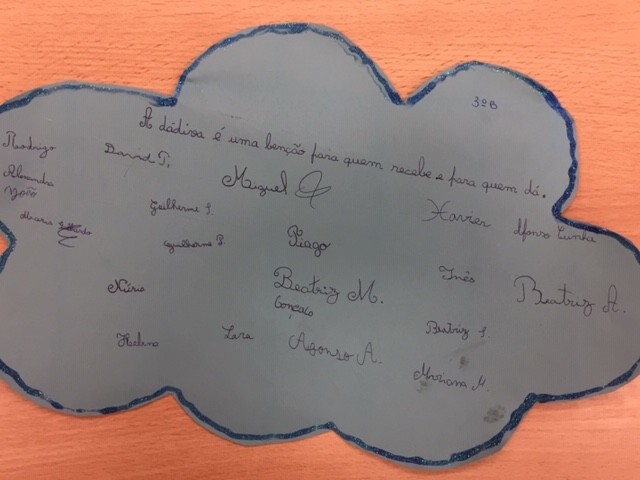 3ºB
A dádiva é uma benção para quem recebe e para quem dá.
Rodrigo
David P.
Alexandra
João
Miguel
Guilherme G.
Xavier
Afonso Cunha
Maria
Guilherme P.
Tiago
Núria
Beatriz M.
Inês
Beatriz A.
Gonçalo
Helena
Lara
Afonso A.
Beatriz S.
Mariana M.